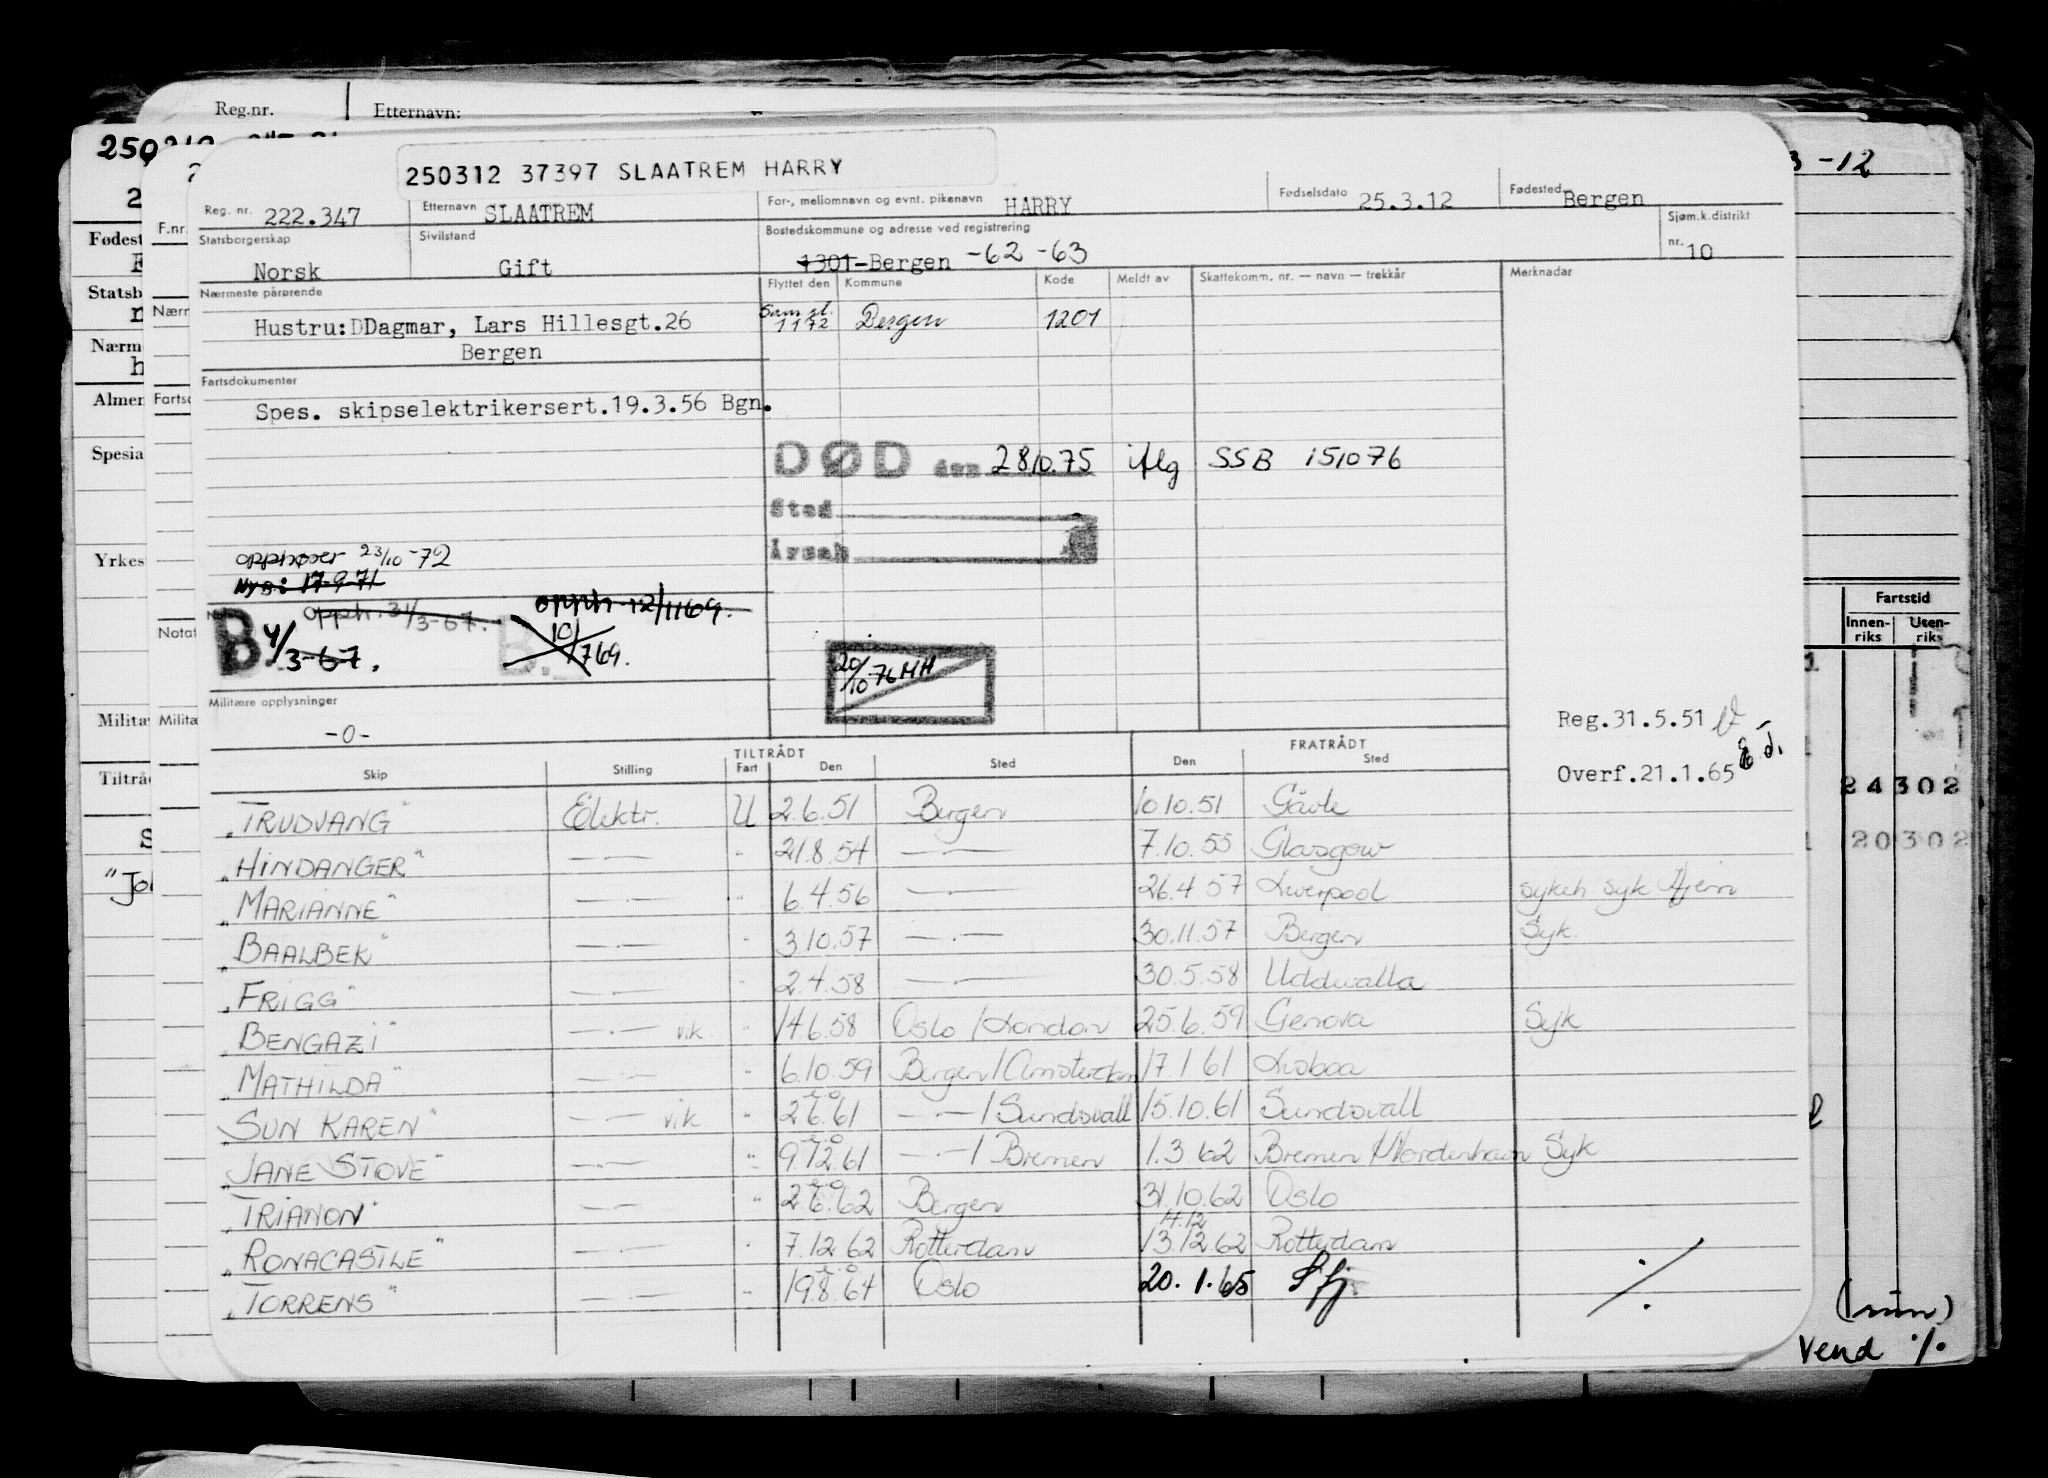 Reg.nr. Etternavn:
250312 37397 SLAATREM HARRY
Reg. nr. 222.347 Etternavn SLAATREM For-, mellomnavn og evnt. pikenavn HARRY Fødselsdato 25.3.12 Fødested Bergen
Statsborgerskap Norsk Sivilstand Gift Bostedskommune og adresse ved registrering 1301-Bergen -62 -63 Sjøm.k.distrikt nr. 10
Nærmeste pårørende Flyttet den Kommune Kode Meldt av Skattekomm. nr. — navn — trekkår Merknader
Hustru:DDagmar, Lars Hillesgt.26 1172 Bergen 1201
Bergen
Fartsdokumenter
Spes. skipselektrikersert.19.3.56 Bgn.
DØD den 281075 iflg SSB 151076
Sted
Årsak
opphører 23/10-72
Ny B: 17-9-71
Opph. 31/3-67. opph. 12/1169.
B. 4/3-67. B. 10/769.
20/10-76 MH
Militære opplysninger
-0-
Reg.31.5.51
Overf.21.1.65
TILTRÅDT FRATRÅDT
Skip Stilling Fart Den Sted Den Sted
"TRUDVANG" Elektr. U 2.6.51 Bergen 10.10.51 Gävle
"HINDANGER" —·— " 21.8.54 —·— 7.10.55 Glasgow
"MARIANNE" —·— " 6.4.56 —·— 26.4.57 Liverpool sykeh syk hjem
"BAALBEK" —·— " 3.10.57 —·— 30.11.57 Bergen Syk.
"FRIGG" —·— " 2.4.58 —·— 30.5.58 Uddevalla
"BENGAZI" —·— vik " 14.6.58 Oslo / London 25.6.59 Genova Syk
"MATHILDA" —·— " 6.10.59 Bergen / Amsterdam 17.1.61 Lisboa
"SUN KAREN" —·— vik " 2.6.61 —·— / Sundsvall 15.10.61 Sundsvall
"JANE STOVE" —·— " 9.12.61 —·— / Bremen 1.3.62 Bremen / Nordenhavn Syk
"TRIANON" —·— " 2.6.62 Bergen 31.10.62 Oslo
14.12
"RONACASTLE" —·— " 7.12.62 Rotterdam 13.12.62 Rotterdam
"TORRENS" —·— " 19.8.64 Oslo 20.1.65 Sfj
./.
-12
Fartstid
Innen-riks Uten-riks
24302
20302
Vend ./.